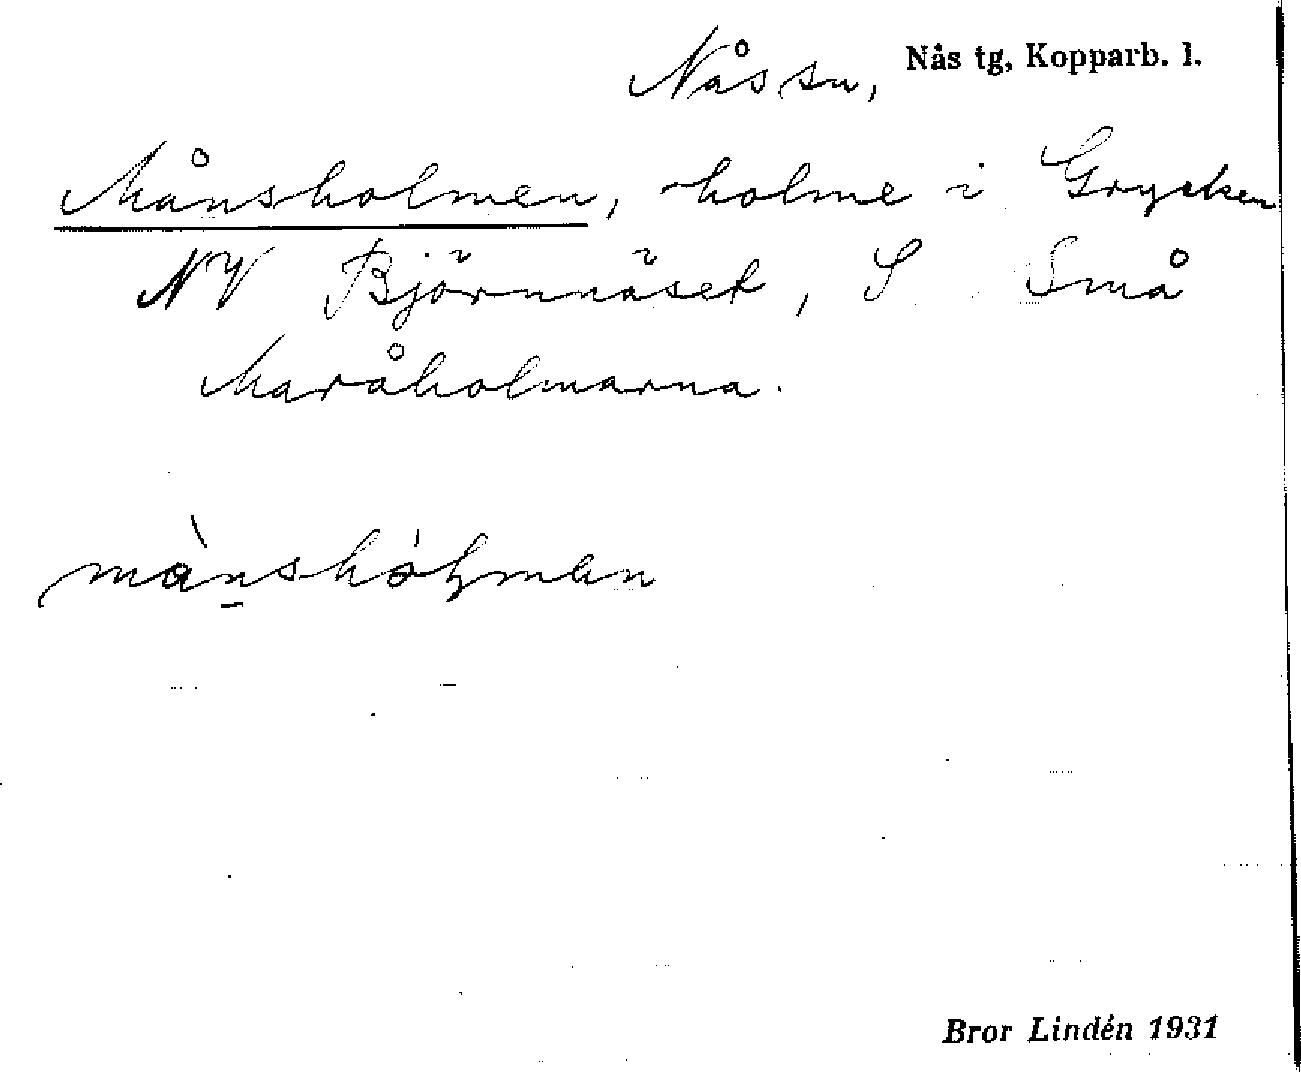 Nås sn, Nås tg, Kopparb. l.
Månsholmen, holme i Grycken
NV Björnnäset, S Små
Maråholmarna.
Bror Lindén 1931